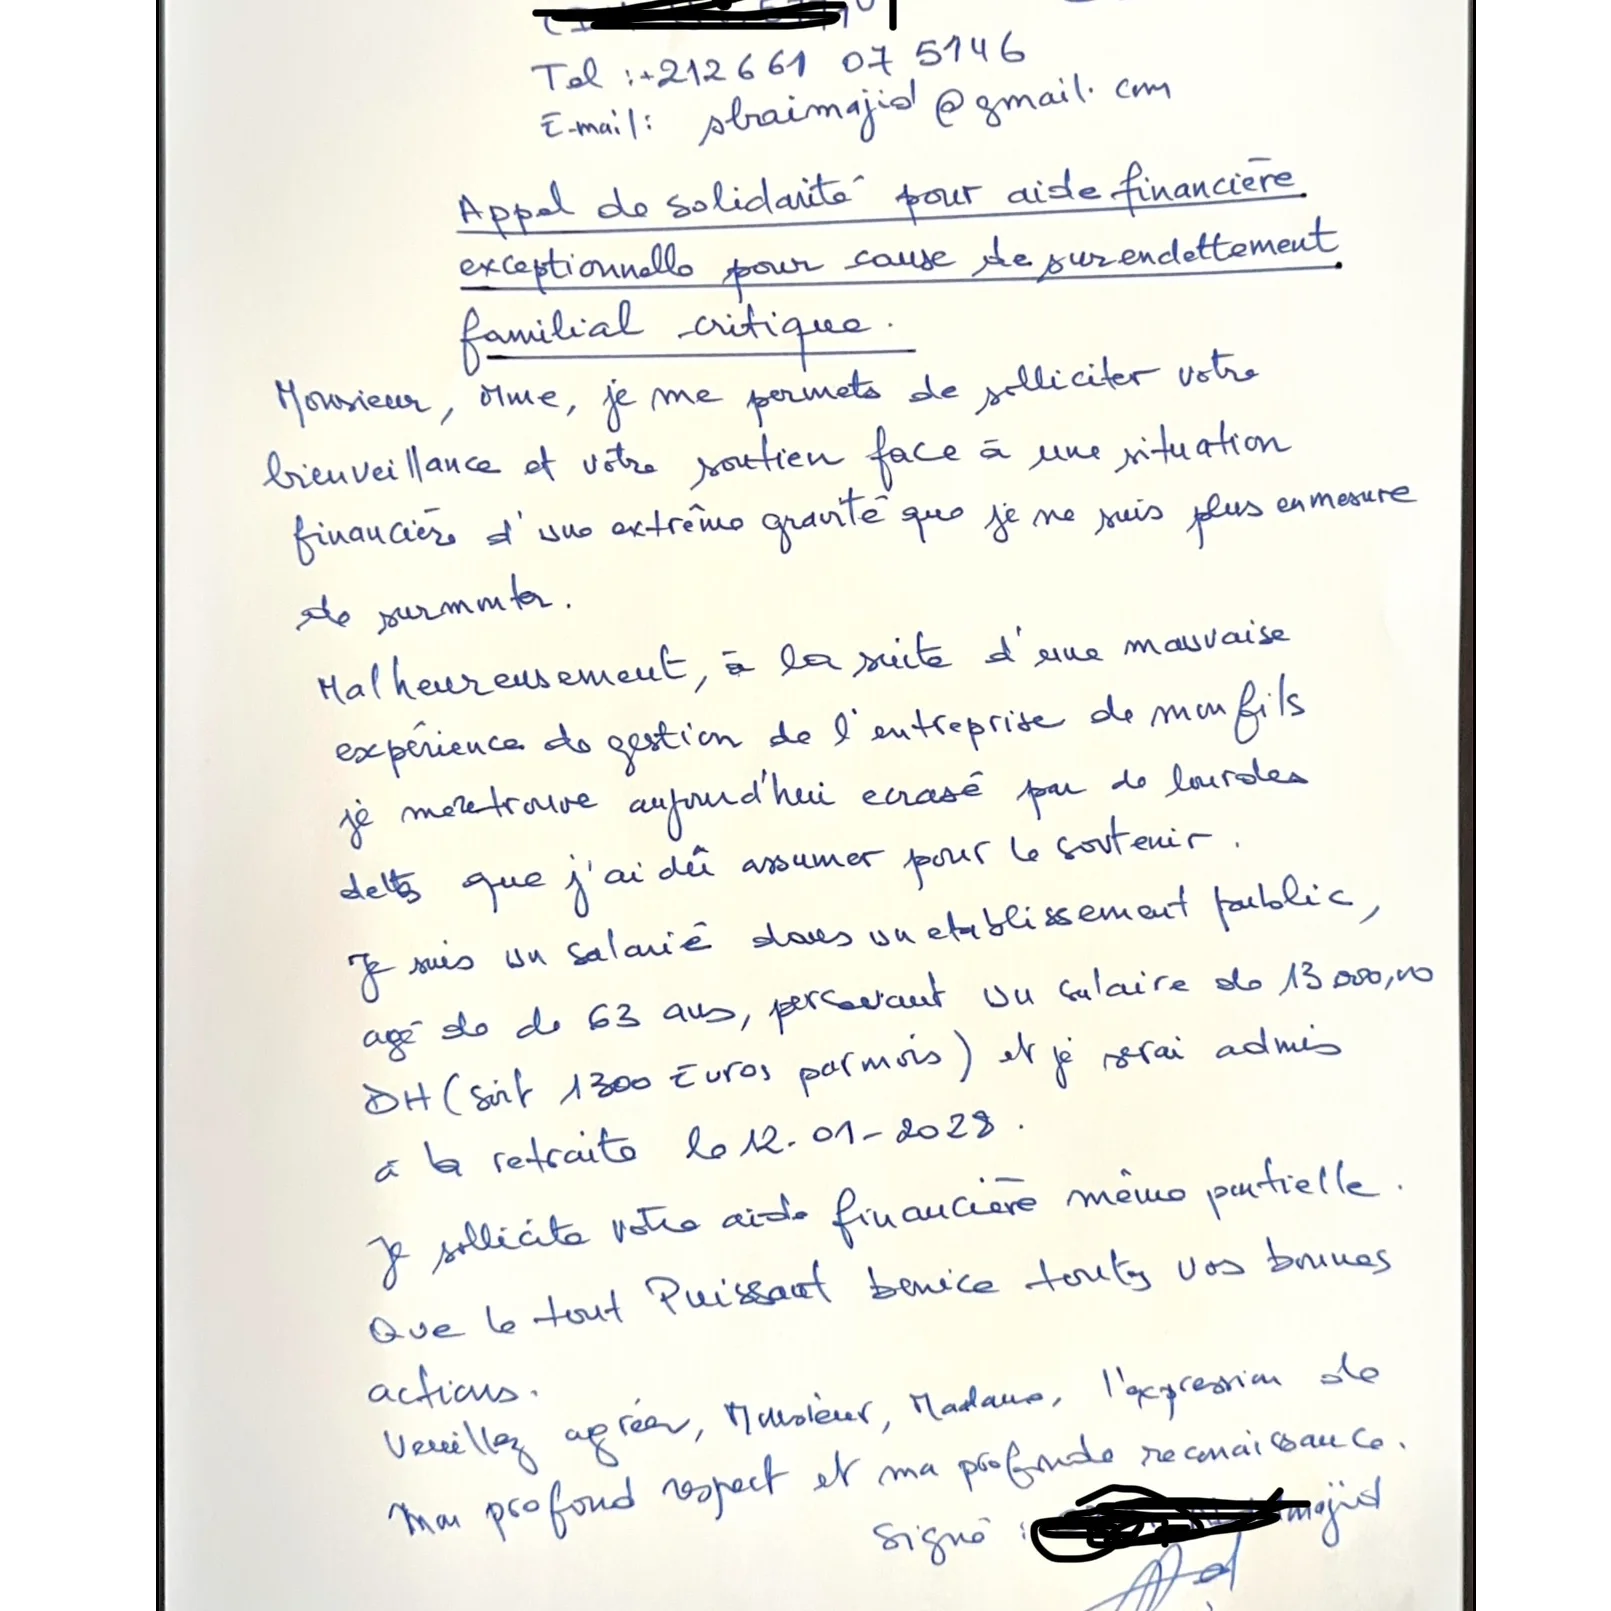 Tel : +212 661 07 5146
E-mail : sbraimajid@gmail.com
Appel de solidarité pour aide financière
exceptionnelle pour cause de surendettement
familial critique.
Monsieur, Mme, je me permets de solliciter votre
bienveillance et votre soutien face à une situation
financière d'une extrême gravité que je ne suis plus en mesure
de surmonter.
Malheureusement, à la suite d'une mauvaise
expérience de gestion de l'entreprise de mon fils
je me retrouve aujourd'hui ecrasé par de lourdes
dettes que j'ai dû assumer pour le soutenir.
Je suis un salarié dans un etablissement public,
agé de de 63 ans, percevant un salaire de 13 000,00
DH (soit 1300 Euros par mois) et je serai admis
à la retraite le 12-01-2028.
Je sollicite votre aide financière même partielle.
Que le tout Puissant benice toutes vos bonnes
actions.
Veuillez agréer, Monsieur, Madame, l'expression de
mon profond respect et ma profonde reconaissance.
Signé : majid